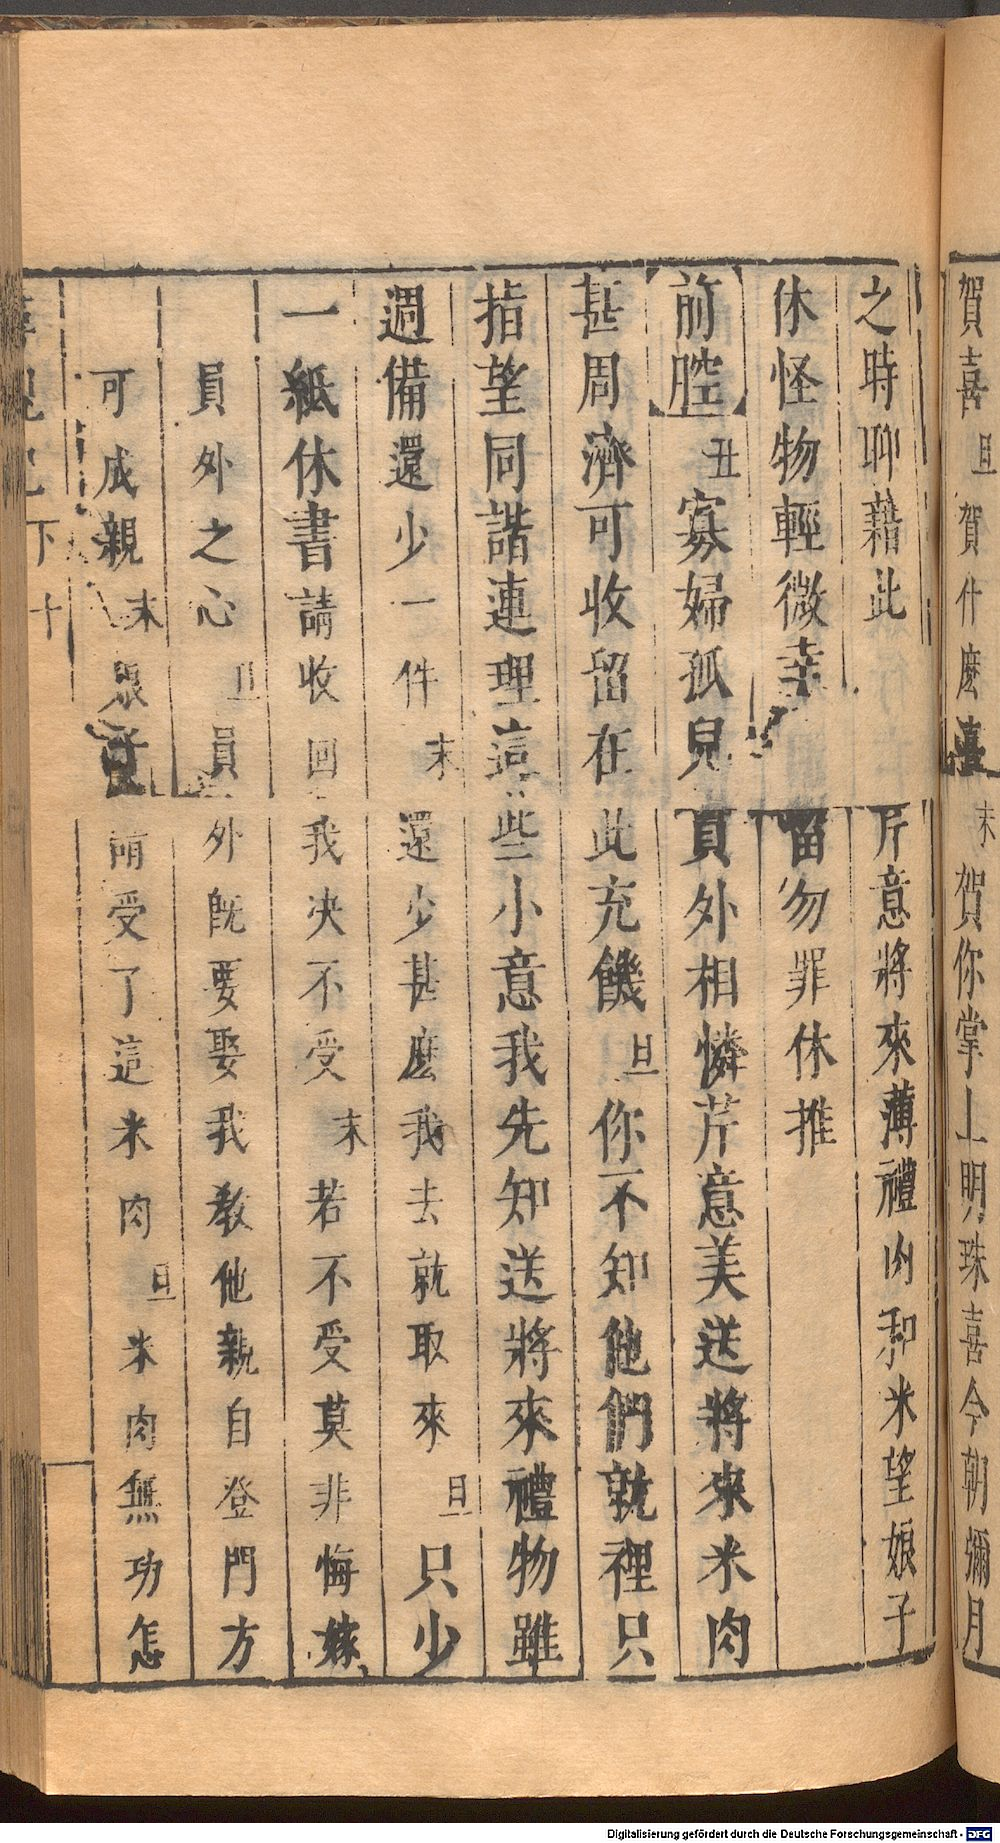 賀喜旦賀什麼喜末賀你掌上明珠喜今朝彌月
之時聊藉此芹意將來薄禮肉和米望娘子
休怪物輕微幸留勿罪休推
前腔丑寡婦孤兒員外相憐芹意美送將來米肉
甚周濟可收留在此充饑旦你不知他們就裡只
指望同諧連理這些小意我先知送將來禮物雖
週備還少一件末還少甚麼我去就取來旦只少
一紙休書請收回我決不受末若不受莫非悔嫁
員外之心旦員外既要娶我教他親自登門方
可成親末眾受了這米肉旦米肉無功怎
記下十
Digitalisierung gefördert durch die Deutsche Forschungsgemeinschaft - DFG